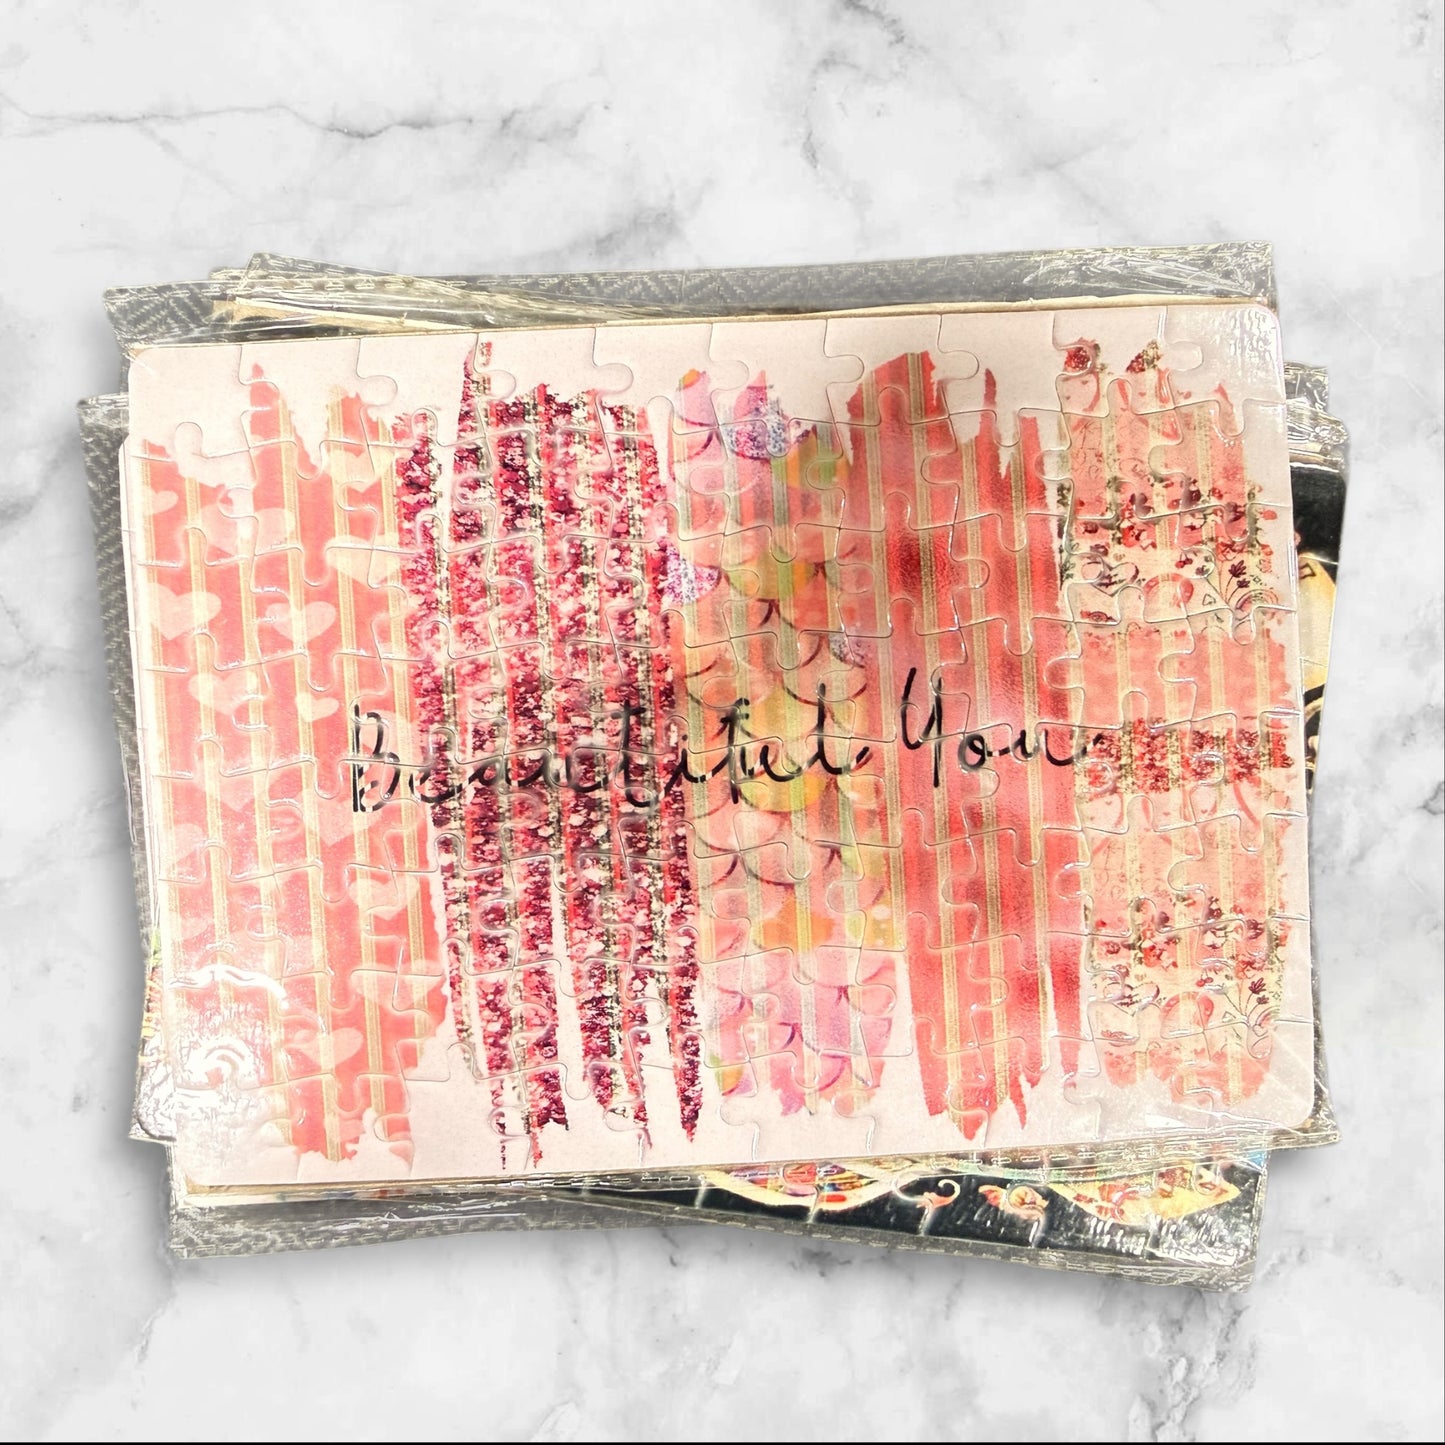 Beautiful You